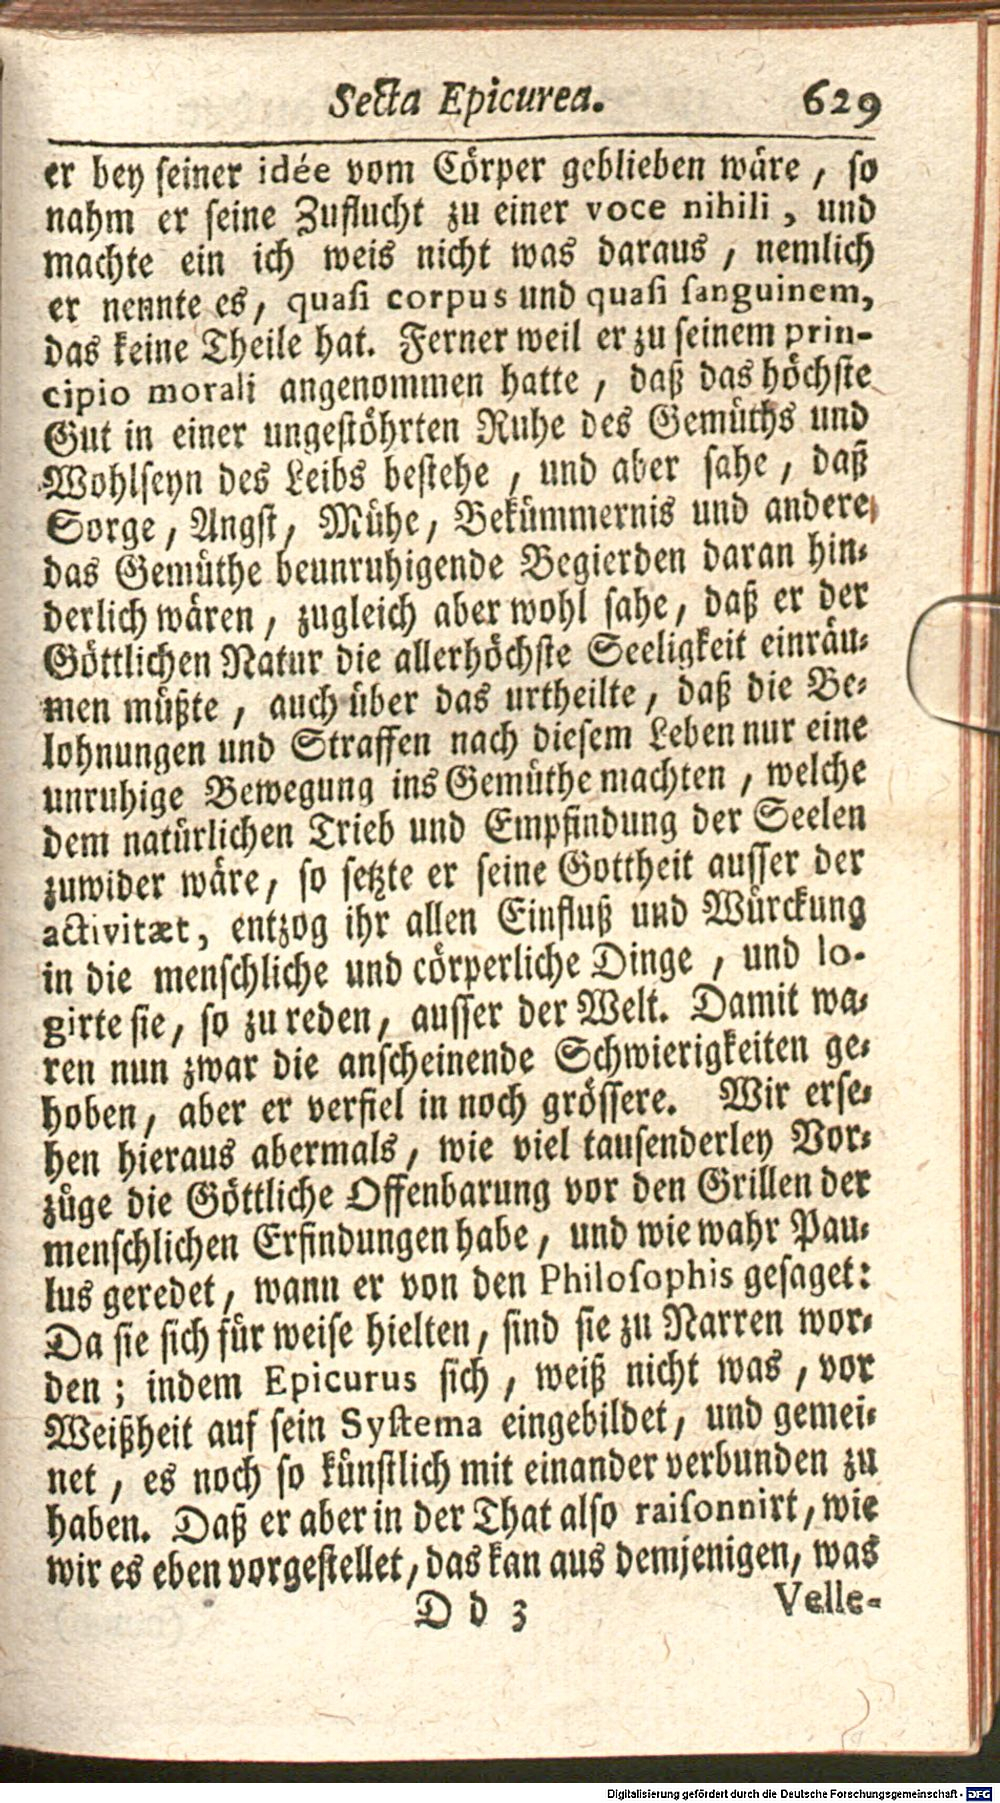 Secta Epicurea. 629
er bey seiner idée vom Cörper geblieben wäre, so
nahm er seine Zuflucht zu einer voce nihili, und
machte ein ich weis nicht was daraus, nemlich
er nennte es, quasi corpus und quasi sanguinem,
das keine Theile hat. Ferner weil er zu seinem prin-
cipio morali angenommen hatte, daß das höchste
Gut in einer ungestöhrten Ruhe des Gemüths und
Wohlseyn des Leibs bestehe, und aber sahe, daß
Sorge, Angst, Mühe, Bekümmernis und andere
das Gemüthe beunruhigende Begierden daran hin-
derlich wären, zugleich aber wohl sahe, daß er der
Göttlichen Natur die allerhöchste Seeligkeit einräu-
men müßte, auch über das urtheilte, daß die Be-
lohnungen und Straffen nach diesem Leben nur eine
unruhige Bewegung ins Gemüthe machten, welche
dem natürlichen Trieb und Empfindung der Seelen
zuwider wäre, so setzte er seine Gottheit ausser der
activitæt, entzog ihr allen Einfluß und Würckung
in die menschliche und cörperliche Dinge, und lo-
girte sie, so zu reden, ausser der Welt. Damit wa-
ren nun zwar die anscheinende Schwierigkeiten ge-
hoben, aber er verfiel in noch grössere. Wir erse-
hen hieraus abermals, wie viel tausenderley Vor-
züge die Göttliche Offenbarung vor den Grillen der
menschlichen Erfindungen habe, und wie wahr Pau-
lus geredet, wann er von den Philosophis gesaget:
Da sie sich für weise hielten, sind sie zu Narren wor-
den; indem Epicurus sich, weiß nicht was, vor
Weißheit auf sein Systema eingebildet, und gemei-
net, es noch so künstlich mit einander verbunden zu
haben. Daß er aber in der That also raisonnirt, wie
wir es eben vorgestellet, das kan aus demjenigen, was
D d 3 Velle-
Digitalisierung gefördert durch die Deutsche Forschungsgemeinschaft - DFG